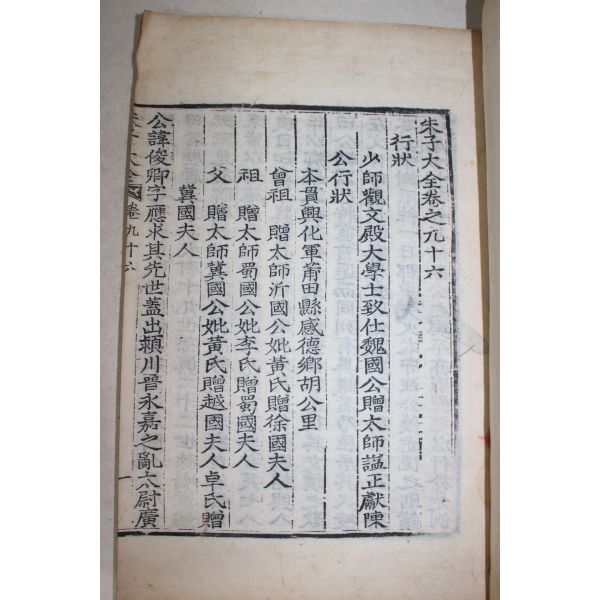 朱子大全卷之九十六
行狀
少師觀文殿大學士致仕魏國公贈太師諡正獻陳
公行狀
本貫興化軍莆田縣感德鄉胡公里
曾祖 贈太師沂國公妣黃氏贈徐國夫人
祖 贈太師蜀國公妣李氏贈蜀國夫人
父 贈太師冀國公妣黃氏贈越國夫人卓氏贈
冀國夫人
公諱俊卿字應求其先世蓋出潁川晉永嘉之亂太尉廣
朱子大全 卷九十六 一